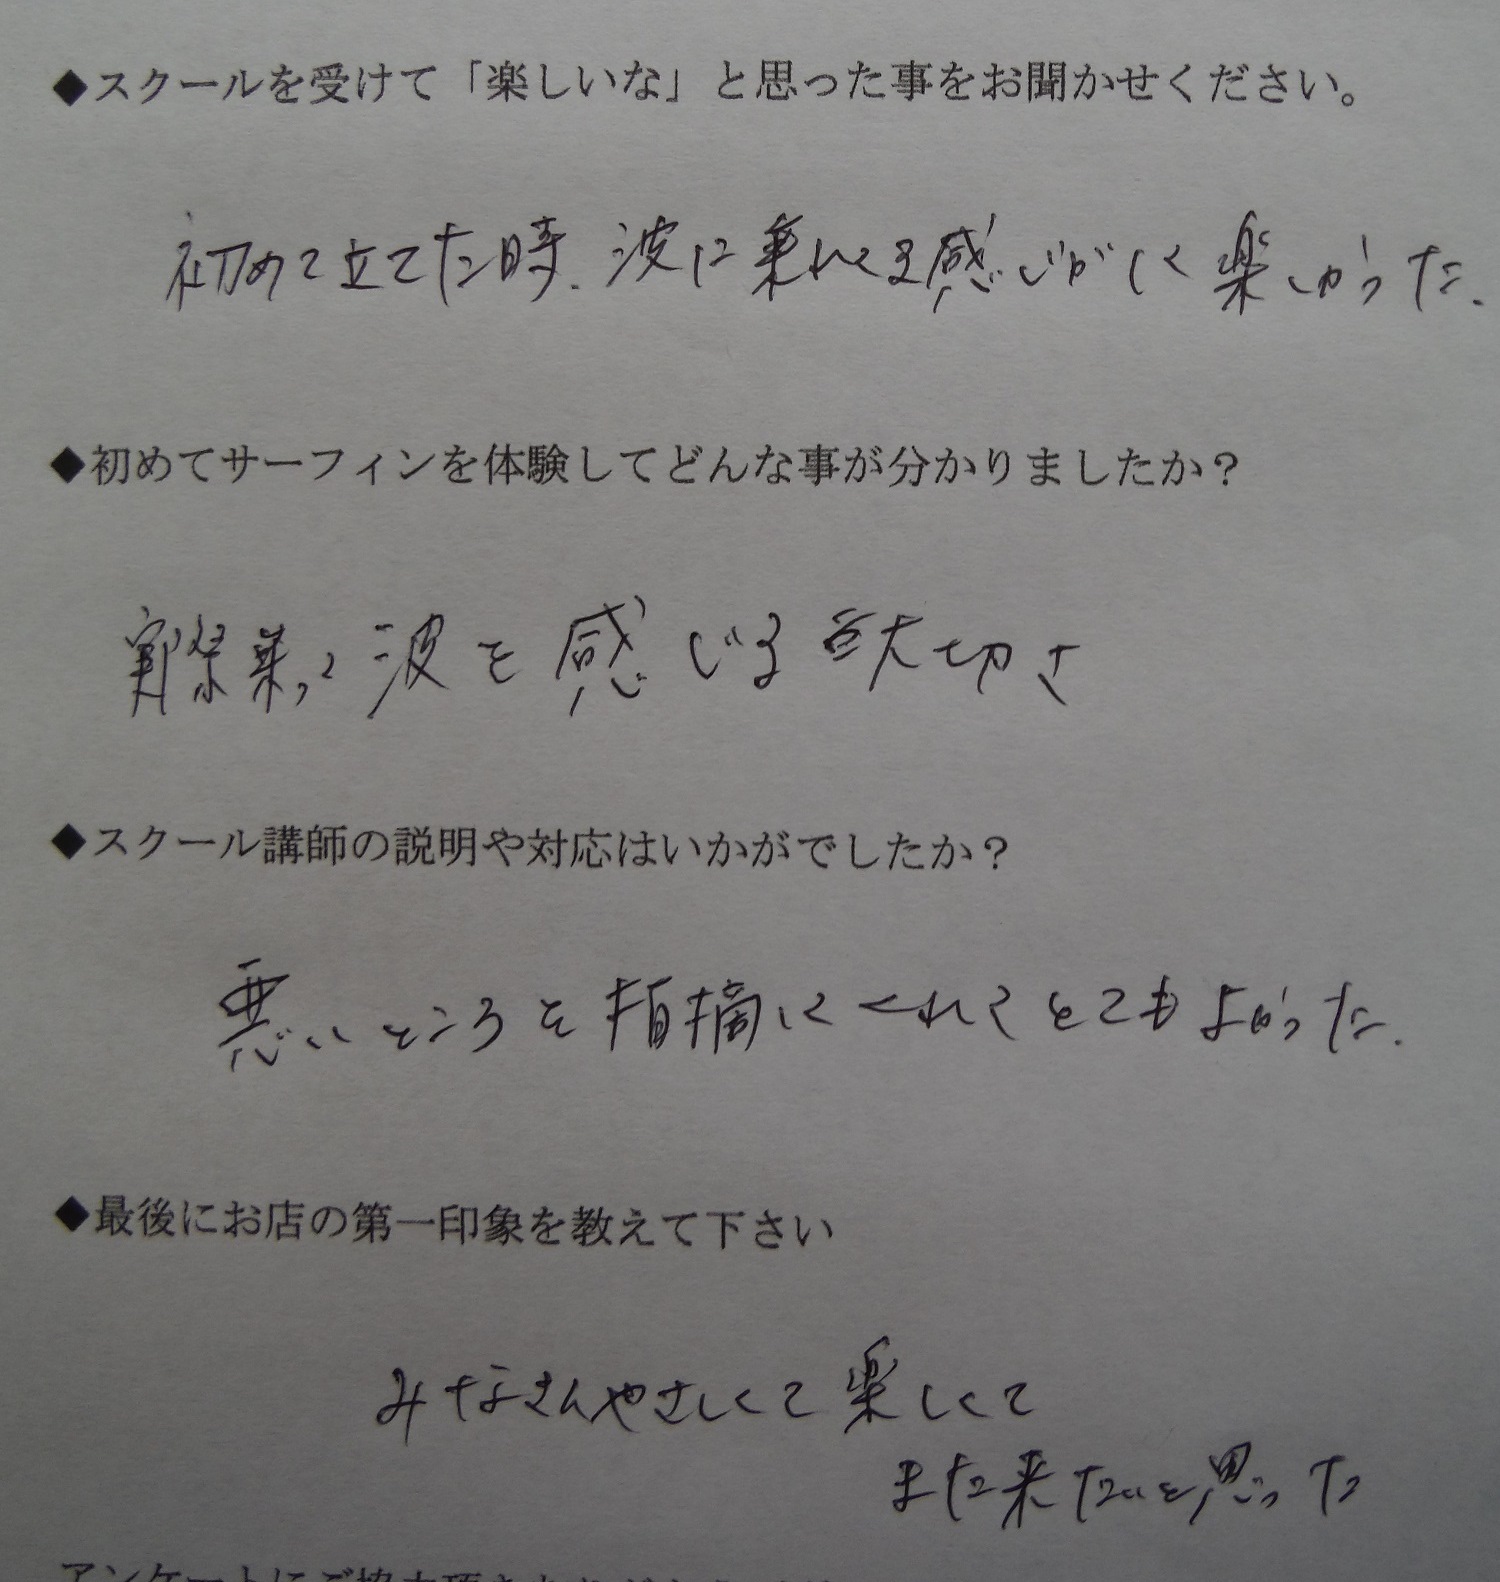 ◆スクールを受けて「楽しいな」と思った事をお聞かせください。
初めて立てた時、波に乗れてる感じがして楽しかった.
◆初めてサーフィンを体験してどんな事が分かりましたか?
実際乗って波を感じる 大切さ
◆スクール講師の説明や対応はいかがでしたか?
悪いところを指摘してくれてとてもよかった.
◆最後にお店の第一印象を教えて下さい
みなさんやさしくて楽しくて
また来たいと思った